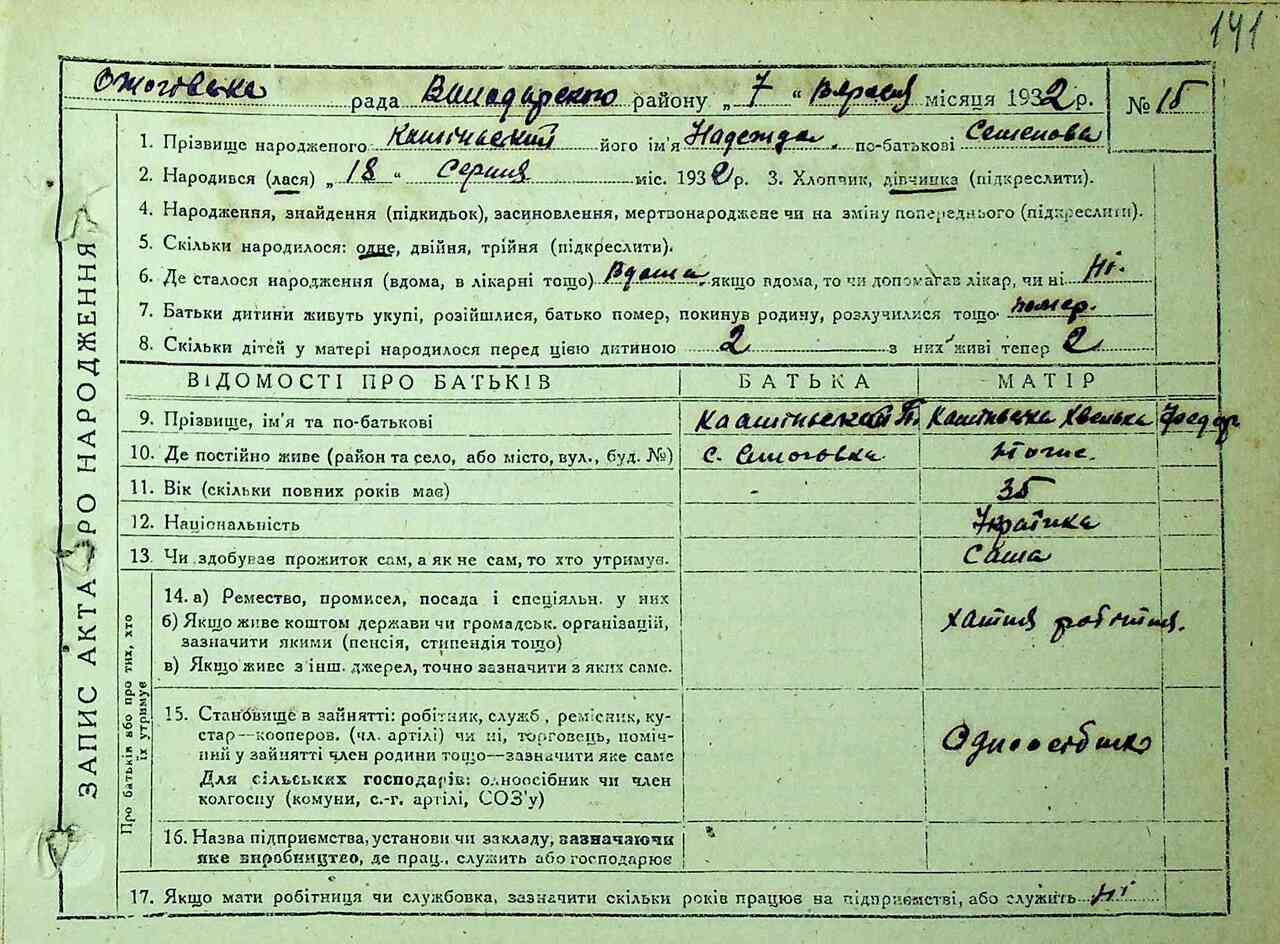 141
Ожогівська рада Володарского району „ 7 “ Вересня місяця 1932 р. № 15
1. Прізвище народженого його ім'я Надежда по-батькові Семенова
2. Народився (лася) „ 18 “ Серпня міс. 1932 р. 3. Хлопчик, дівчинка (підкреслити).
4. Народження, знайдення (підкидьок), засиновлення, мертвонароджене чи на зміну попереднього (підкреслити).
5. Скільки народилося: одне, двійня, трійня (підкреслити).
6. Де сталося народження (вдома, в лікарні тощо) Вдома якщо вдома, то чи допомагав лікар, чи ні Ні.
7. Батьки дитини живуть укупі, розійшлися, батько помер, покинув родину, розлучилися тощо помер.
8. Скільки дітей у матері народилося перед цією дитиною 2 з них живі тепер 2
ВІДОМОСТІ ПРО БАТЬКІВ БАТЬКА МАТІР
9. Прізвище, ім'я та по-батькові
10. Де постійно живе (район та село, або місто, вул., буд. №) с.
11. Вік (скільки повних років має) - 35
12. Національність Українка
13. Чи здобуває прожиток сам, а як не сам, то хто утримує. Сама
14. а) Ремество, промисел, посада і спеціяльн. у них
б) Якщо живе коштом держави чи громадськ. організацій,
зазначити якими (пенсія, стипендія тощо)
в) Якщо живе з інш. джерел, точно зазначити з яких саме.
хатня робітня.
15. Становище в зайнятті: робітник, служб., ремісник, ку-
стар—кооперов. (чл. артілі) чи ні, торговець, поміч-
ний у зайнятті член родини тощо—зазначити яке саме
Для сільських господарів: одноосібник чи член
колгоспу (комуни, с.-г. артілі, СОЗ'у)
16. Назва підприємства, установи чи закладу, зазначаючи
яке виробництво, де прац., служить або господарює
17. Якщо мати робітниця чи службовка, зазначити скільки років працює на підприємстві, або служить Ні
ЗАПИС АКТА ПРО НАРОДЖЕННЯ
Про батьків або про тих, хто
їх утримує